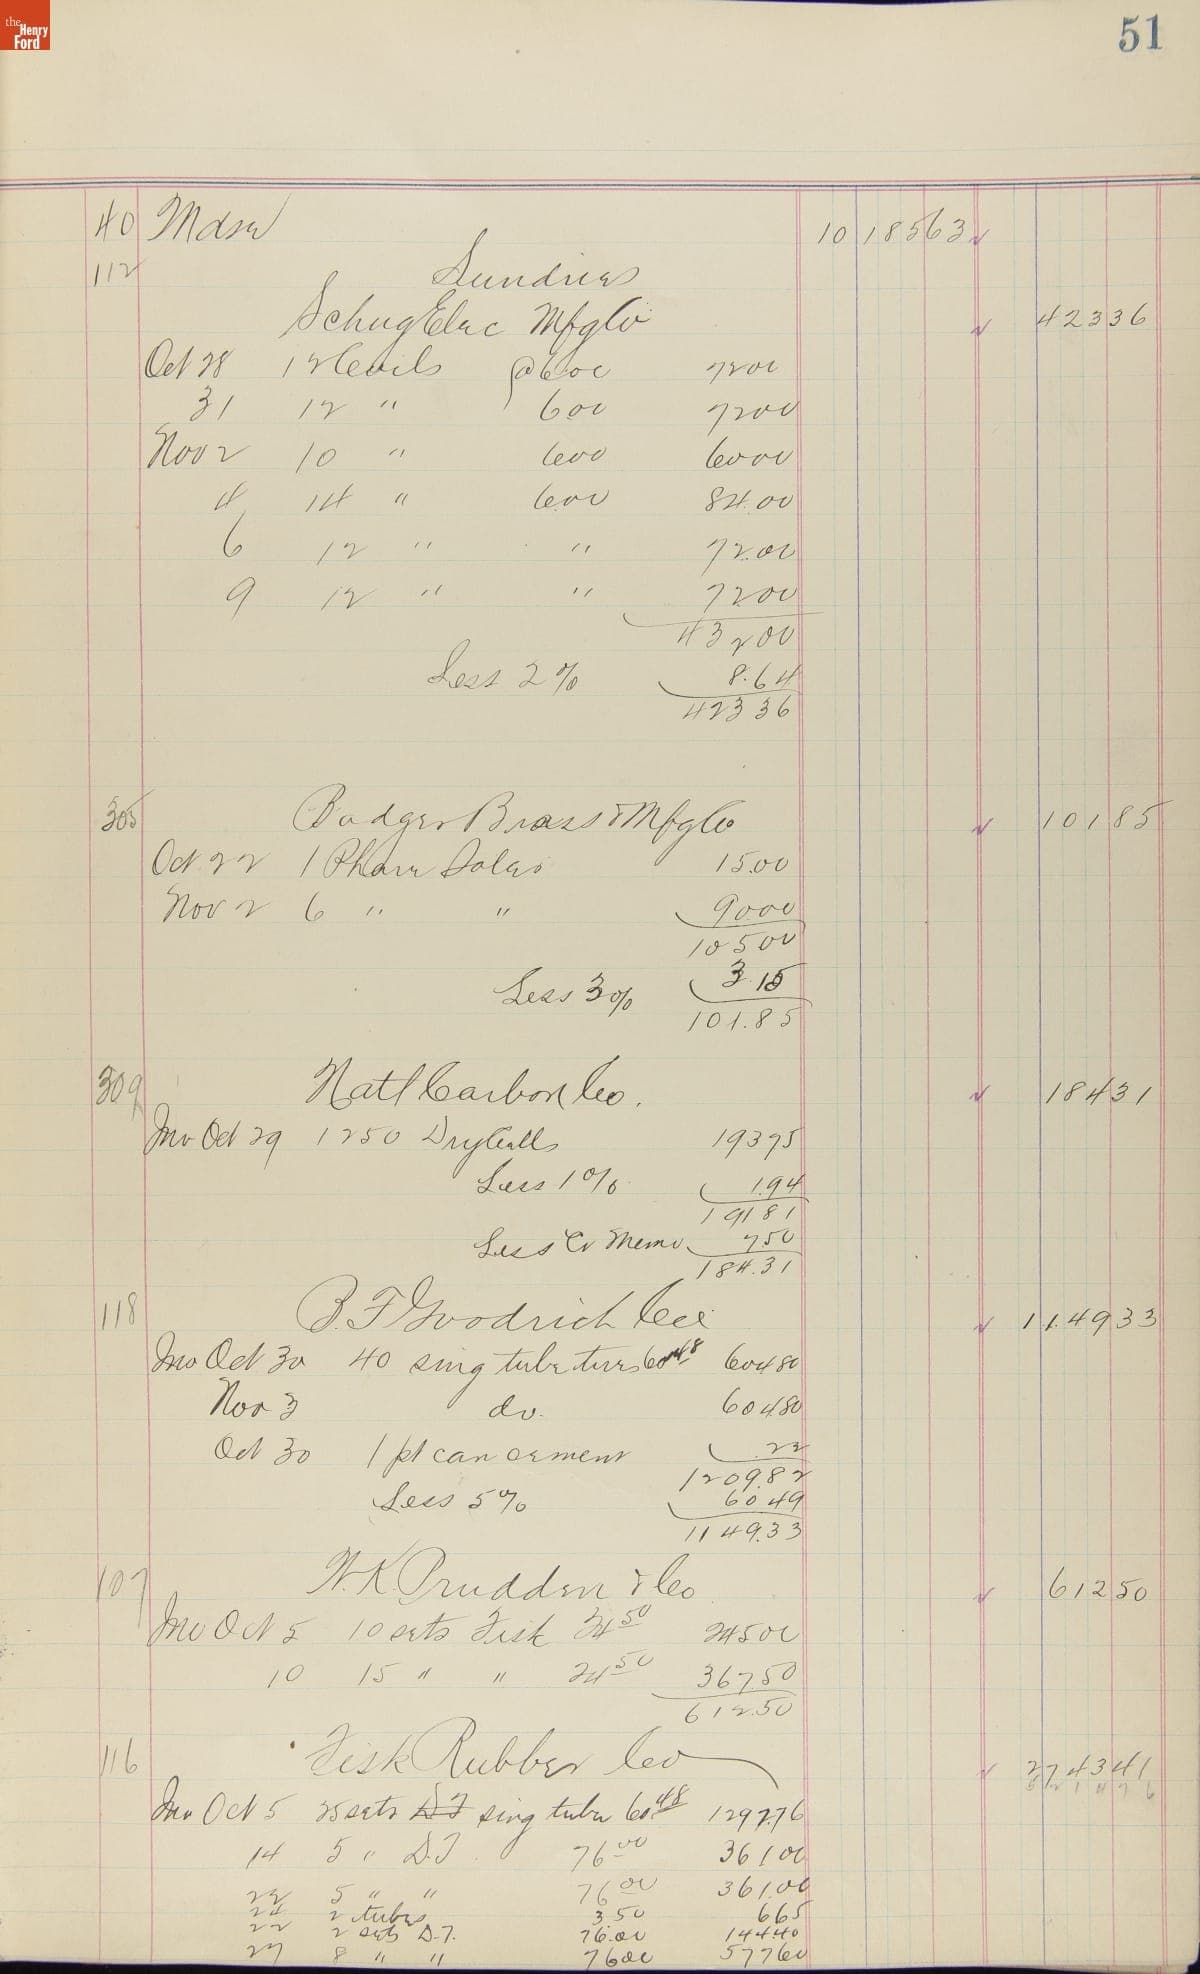 the Henry Ford
51
40 Mdse 10 185 63
112 Sundries
Schug Elec Mfg Co 423 36
Oct 28 12 Coils @ 6 00 72 00
31 12 " 6 00 72 00
Nov 2 10 " 6 00 60 00
4 14 " 6 00 84.00
6 12 " " 72.00
9 12 " " 72 00
432 00
Less 2% 8.64
423 36
305 Badger Brass & Mfg Co 101 85
Oct 22 1 Phare Solar 15.00
Nov 2 6 " " 90 00
105 00
Less 3% 3.15
101.85
309 Natl Carbon Co. 184 31
Inv Oct 29 1250 Dry Cells 193 75
Less 1% 1.94
191 81
Less Cr Memo 7 50
184.31
118 B.F Goodrich Co 1149 33
Inv Oct 30 40 sing tube tires 60 48 604 80
Nov 3 do. 604 80
Oct 30 1 pt can cement .22
1209.82
Less 5% 60 49
1149.33
107 W.K. Prudden & Co 612 50
Inv Oct 5 10 sets Fisk 24 50 245 00
10 15 " " 24 50 367 50
612.50
116 Fisk Rubber Co 2743 41
Inv Oct 5 sets D T sing tube 60.48 1297.76
14 5 " D.T 76 00 361 00
22 5 " " 76 00 361.00
24 2 tubes 3.50 6 65
22 2 sets D.T. 76.00 144.40
27 8 " " 76 00 577 60